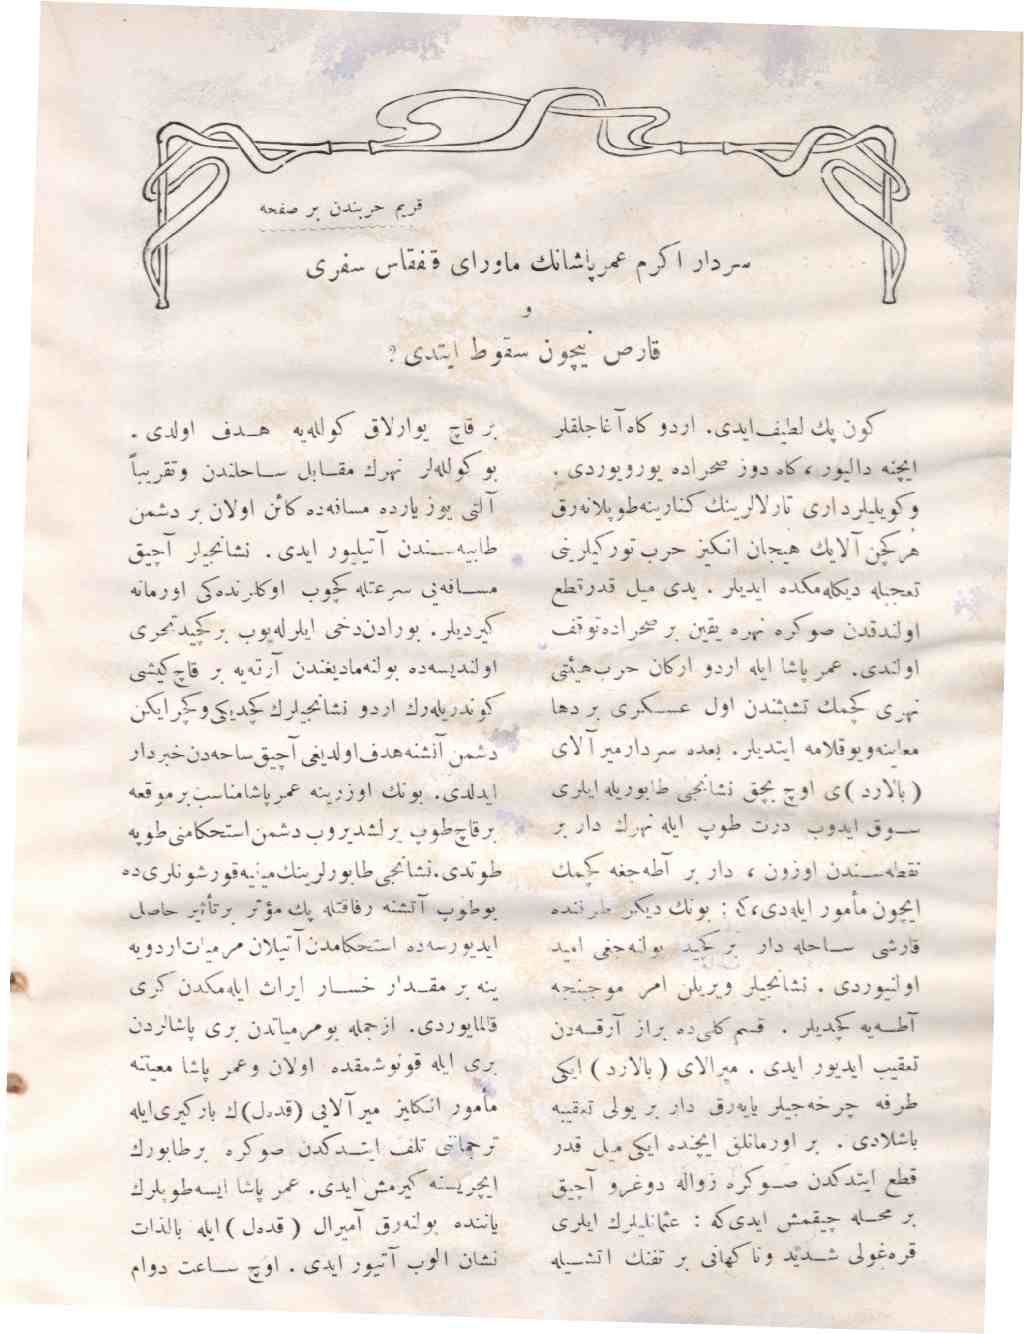 قریم حربندن بر صفحه
سردار اكرم عمرپاشانك ماورای قفقاس سفری
و
قارص نیچون سقوط ایتدی؟
كون پك لطیف ایدی. اردو كاه آغاجلقلر
ایچنه دالیور، كاه دوز صحراده یورویوردی.
وكویلیلرداری تارلالرینك كنارینه طوپلانه رق
هركچن آلایك هیجان انكیز حرب توركیلرینی
تعجبله دیكله مكده ایدیلر. یدی میل قدر قطع
اولندقدن صوكره نهره یقین بر صحراده توقف
اولندی. عمر پاشا ایله اردو اركان حرب هیئتی
نهری كچمك تشبثندن اول عسكری بر دها
معاینه ویوقلامه ایتدیلر. بعده سردار میر آلای
(بالارد) ی اوچ بچق نشانجی طابوریله ایلری
سوق ایدوب درت طوپ ایله نهرك دار بر
نقطه سندن اوزون، دار بر آطه جغه كچمك
ایچون مأمور ایله دی، كه: بونك دیكر طرفنده
قارشی ساحله دار بر كچید بولنه جغی امید
اولنیوردی. نشانجیلر ویریلن امر موجبنجه
آطه یه كچدیلر. قسم كلی ده براز آرقه دن
تعقیب ایدیور ایدی. میرالای (بالارد) ایكی
طرفه چرخه جیلر یایه رق دار بر یولی تعقیبه
باشلادی. بر اورمانلق ایچنده ایكی میل قدر
قطع ایتدكدن صوكره زواله دوغرو آچیق
بر محله چیقمش ایدی كه: عثمانلیلرك ایلری
قره غولی شدید وناكهانی بر تفنك آتشیله
بر قاچ یوارلاق كولله یه هدف اولدی.
بو كولله لر نهرك مقابل ساحلندن وتقریباً
آلتی یوز یارده مسافه ده كائن اولان بر دشمن
طابیه سندن آتیلیور ایدی. نشانجیلر آچیق
مسافه یی سرعتله كچوب اوكلرنده كی اورمانه
كیردیلر. بورادن دخی ایلرله یوب بر كچید تحری
اولندیسه ده بولنه مادیغندن آرته یه بر قاچ كیشی
كوندریله رك اردو نشانجیلرك كچدیكی وكچر ایكن
دشمن آتشنه هدف اولدیغی آچیق ساحه دن خبردار
ایدلدی. بونك اوزرینه عمر پاشا مناسب بر موقعه
بر قاچ طوپ یرلشدیروب دشمن استحكامنی طوپه
طوتدی. نشانجی طابورلرینك مینیه قورشونلری ده
بو طوپ آتشنه رفاقتله پك مؤثر بر تأثیر حاصل
ایدیورسه ده استحكامدن آتیلان مرمیات اردویه
ینه بر مقدار خسار ایراث ایله مكدن كری
قالمایوردی. از جمله بو مرمیاتدن بری پاشالردن
بری ایله قونوشمقده اولان وعمر پاشا معیتنه
مأمور انكلیز میر آلایی (قدل) ك باركیری ایله
ترجماننی تلف ایتدكدن صوكره بر طابورك
ایچریسنه كیرمش ایدی. عمر پاشا ایسه طوپلرك
یاننده بولنه رق آمیرال (قدل) ایله بالذات
نشان آلوب آتیور ایدی. اوچ ساعت دوام